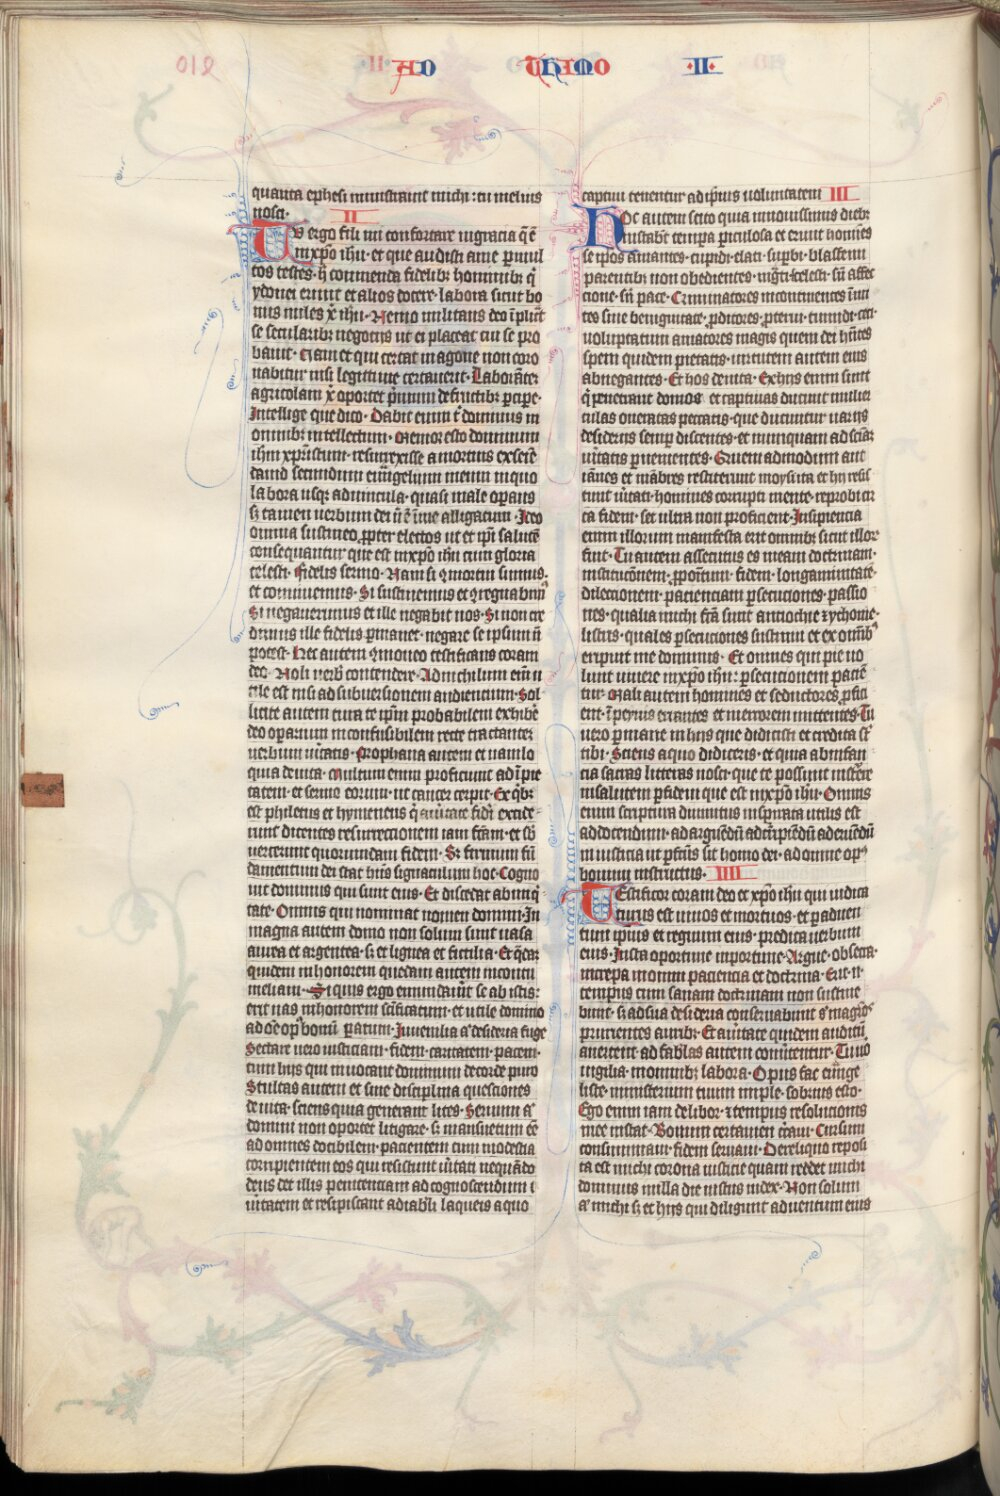 AD THIMO ·II·
quanta ephesi ministrauit michi : tu melius
nosti· II
Tu ergo fili mi confortare in gracia q̄ ē
in xp̄o ih̄u· et que audisti a me p̄ mul
tos testes· h̄ commenda fidelibꝰ hominibꝰ q̄
ydonei erunt et alios docere· labora sicut bo
nus miles x̄ ih̄u· Nemo militans deo īplicat
se secularibꝰ negotiis ut ei placeat cui se pro
bauit· Nam et qui certat in agone non coro
nabitur nisi legittime certauerit· Laborantē
agricolam x̄ oportet p̄mum de fructibꝰ p̄cipe·
Intellige que dico· Dabit enim t̄ dominus in
omnibꝰ intellectum· Memor esto dominum
ih̄m xpristum· resurrexisse a mortuis ex semīe
dauid secundum euuāgelium meum in quo
labora usqꝫ ad uincula· quasi male op̄ans
sꝫ tamen uerbum dei n̄ ē īme alligatum· Ideo
omnia sustineo propter electos ut et ip̄i salutē
consequantur que est in xp̄o ih̄u cum gloria
celesti· Fidelis sermo· Nam si ꝯmortui sumus·
et conuiuemus· Si sustinemus et ꝯregnabimꝰ
Si negauerimus et ille negabit nos· Si non cre
dimus ille fidelis p̄manet· negare se ipsum n̄
potest· Hec autem ꝯmoneo testificans coram
deo· Noli uerbꝭ contendere· Ad nichilum enī u
tile est nisi ad subuersionem audiencium· Sol
licite autem cura te ip̄m probabilem exhibē
deo operarium inconfusibilem recte tractantē
uerbum uītatis· Prophana autem et uanilo
quia deuita· multum enim proficiunt ad īpie
tatem· et sermo eorum· ut cancer serpit· Ex qꝰbꝰ
est philetus et hymeneus q̄ a uīitate fidei excide
runt dicentes resurrectionem iam fc̄am· et sb̄
uerterunt quorumdam fidem· Sꝫ firmum fū
damentum dei stat hn̄s signaculum hoc· Cogno
uit dominus qui sunt eius· Et discedat ab iniqꝰ
tate· Omnis qui nominat nomen domini· In
magna autem domo non solum sunt uasa
aurea et argentea· sꝫ et lignea et fictilia· Et q̄dam
quidem in honorem quedam autem in contu
meliam· Si quis ergo emundauīt se ab istis:
erit uas in honorem sc̄ificatum· et utile domino
ad oē opꝰ bonū paratum· Iuuenilia aꝰ desideria fuge
Sectare uero iusticiam· fidem· caritatem· pacem·
cum hijs qui inuocant dominum de corde puro
Stultas autem et sine disciplina questiones
deuita· sciens quia generant lites· Seruum aꝰ
domini non oportet litigare· sꝫ mansuetum eē
ad omnes docibilem· pacientem cum modestia
corripientem eos qui resistunt uītati nequādo
deus det illis penitenciam ad cognoscendum
uītatem et resipiscant a diabꝉi laqueis a quo
captiui tenentur ad ip̄ius uoluntatem III
Hoc autem scito quia in nouissimis diebꝰ
instabt̄ tempra p̄iculosa et erunt homīes
se ip̄os amantes· cupidi· elati· superbi· blasfemi
parentibꝰ non obedientes· ingrati· scelesti· sīn affec
cione· sīn pace· Criminatores incontinentes īmi
tes sine benignitate· proditores· proterui· tumidi· ceci·
uoluptatum amatores magis quam dei hn̄tes
speciem quidem pietatis· uirtutem autem eius
abnegantes· Et hos deuita· Ex hijs enim sunt
q̄ penetrant domos et captiuas ducunt mulier
culas oneratas peccatis· que ducuntur uarijs
desiderijs semp̄ discentes· et numquam ad sciam
uītatis p̄uenientes· Quem admodum aut
iānes et mābres restiterunt moysi· ita et hij resis
tunt uītati· homines corrupti mente· reprobi cir
ca fidem· set ultra non proficient· Insipiencia
enim illorum manifesta erit omnibꝰ sicut illorꝰ
fuit· Tu autem assecutus es meam doctrinam·
institucōnem· ꝓpoītum· fidem· longanimitatē·
dilectionem· pacienciam p̄secuciones· passio
nes· qualia michi fc̄a sunt antiochie ⁊ ychonie·
listris· quales p̄secuciones sustinui et ex omībꝰ
eripuit me dominus· Et omnes qui pie uo
lunt uiuere in xp̄o ih̄u: p̄secutionem paciē
tur· Mali autem homines et seductores p̄fici
ent· ī peius errantes et in errorem mittentes· Tu
uero p̄mane in hijs que didicisti et credita st̄
tibi· Sciens a quo didiceris· et quia ab infan
cia sacras litteras nosti· que te possunt instrūe
in salutem p̄ fidem que est in xp̄o ih̄u· Omnis
enim scriptura diuinitus inspirata utilis est
ad docendum· ad arguēdū ad corripiēdū ad erudiēdū
in iusticia ut p̄fc̄us sit homo dei· ad omne opꝰ
bonum instructus· IIII
Testificor coram deo et xp̄o ih̄u qui iudica
turus est uiuos et mortuos· et p̄ aduen
tum ip̄ius et regnum eius· predica uerbum
eius· Insta oportune inportune· Argue· obsecra·
increpa in omni paciencia et doctrina· Erit n̄
tempus cum sanam doctrinam non sustine
bunt· sꝫ ad sua desideria coaceruabunt s̄ magrōs
prurientes auribꝰ· Et a uītate quidem auditū
auertent ad fabꝉas autem conuertentur· Tu uō
uigila· in omnibꝫ labora· Opus fac euuange
liste· ministerium tuum imple· sobrius esto·
Ego enim iam delibor· ⁊ tempus resolucionis
mee instat· Bonum certamen certaui· Cursum
consummaui· fidem seruaui· De reliquo reposi
ta est michi corona iusticie quam reddet michi
dominus in illa die iustus iudex· Non solum
aꝰ michi sꝫ et hijs qui diligunt aduentum eius